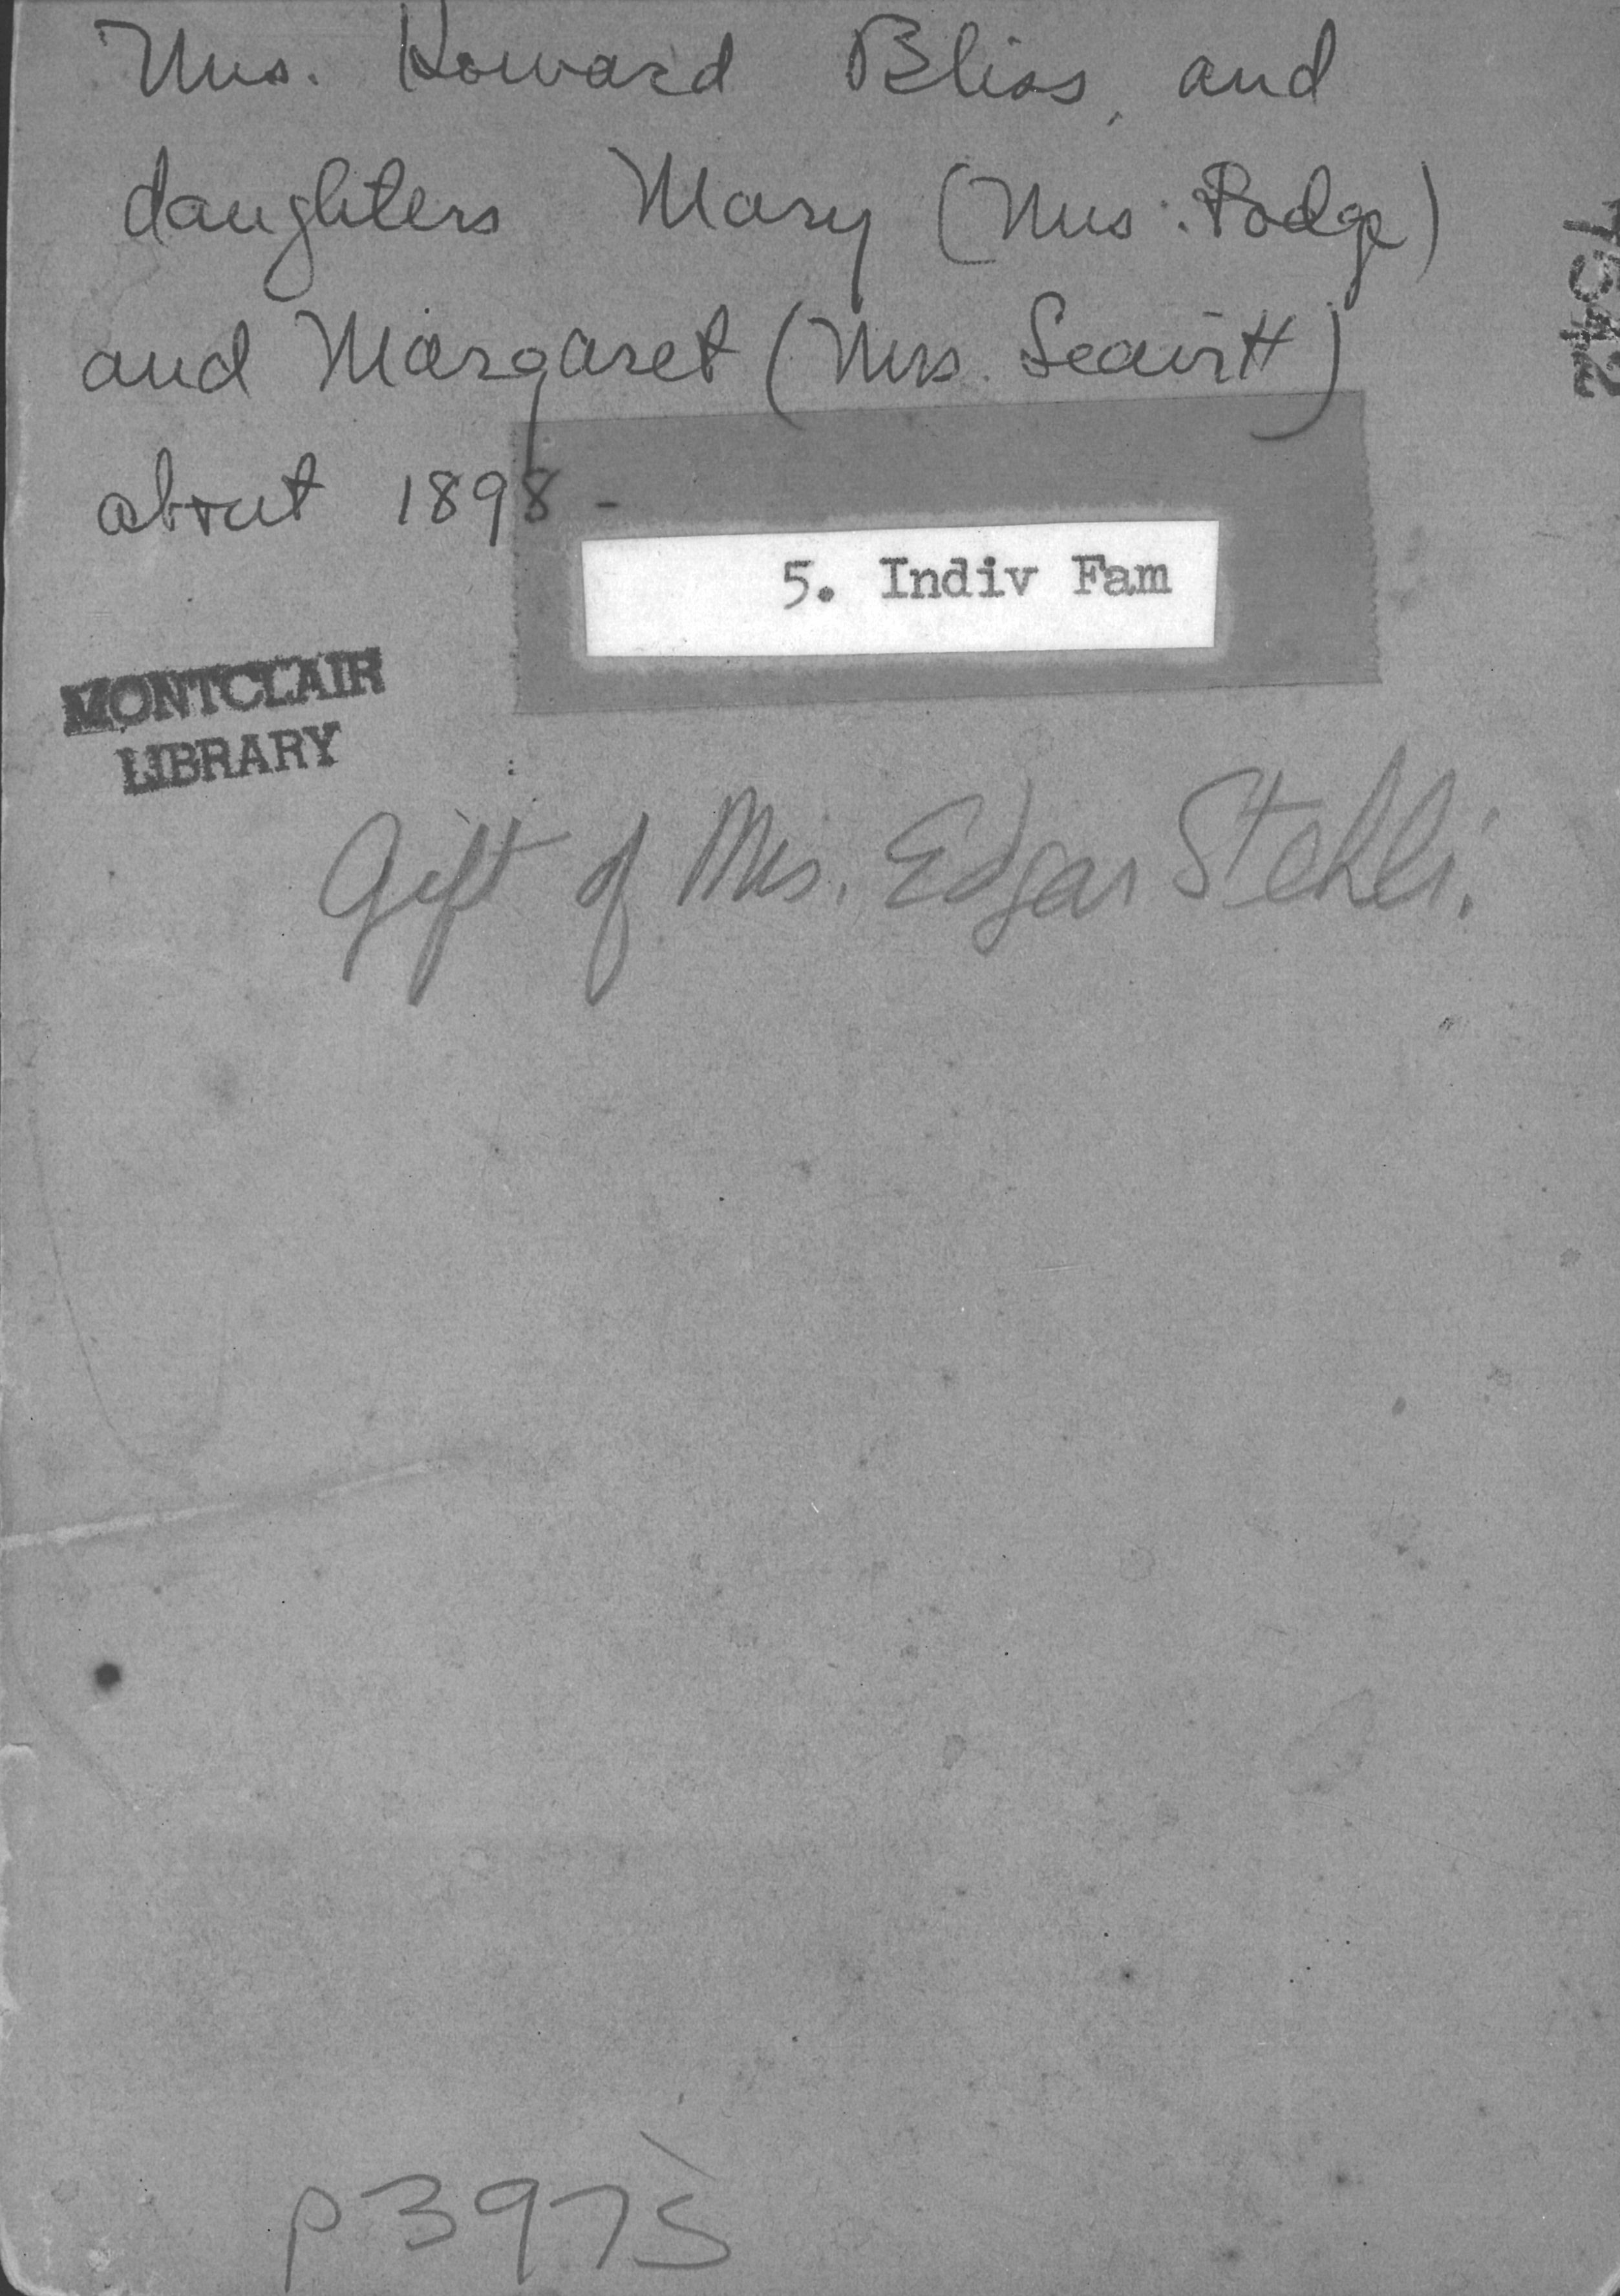 Mrs. Howard Bliss, and
daughters Mary (Mrs. Dodge)
and Margaret (Mrs. Leavitt)
about 1898 -
5. Indiv Fam
MONTCLAIR
LIBRARY
Gift of Mrs. Edgar Stehli.
P3975